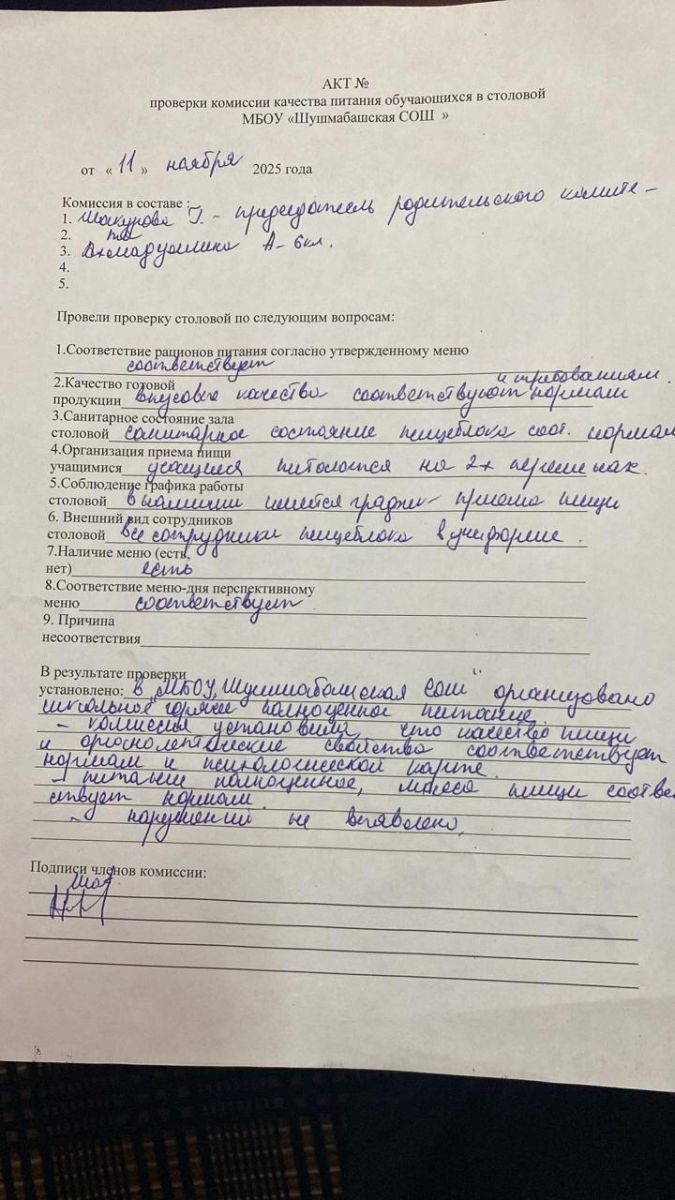 АКТ №
проверки комиссии качества питания обучающихся в столовой
МБОУ «Шушмабашская СОШ »
от « 11 » ноября 2025 года
Комиссия в составе :
1. Шакурова Г. - председатель родительского комите-
2. та
3. Ахмадуллина А - 6 кл.
4.
5.
Провели проверку столовой по следующим вопросам:
1.Соответствие рационов питания согласно утвержденному меню
соответствует
2.Качество готовой и требованиям.
продукции вкусовые качества соответствуют нормам
3.Санитарное состояние зала
столовой санитарное состояние пищеблока соот. нормам
4.Организация приема пищи
учащимися учащиеся питаются на 2х переменах.
5.Соблюдение графика работы
столовой в наличии имеется график приема пищи
6. Внешний вид сотрудников
столовой все сотрудники пищеблока в униформе.
7.Наличие меню (есть,
нет) есть
8.Соответствие меню-дня перспективному
меню соответствует
9. Причина
несоответствия
В результате проверки
установлено: в МБОУ "Шушмабашская СОШ" организовано
школьное горячее полноценное питание.
- комиссия установила, что качество пищи
и органолептические свойства соответствует
нормам и психологической карте.
- питание полноценное, масса пищи соответ
ствует нормам.
- нарушений не выявлено.
Подписи членов комиссии:
Шак